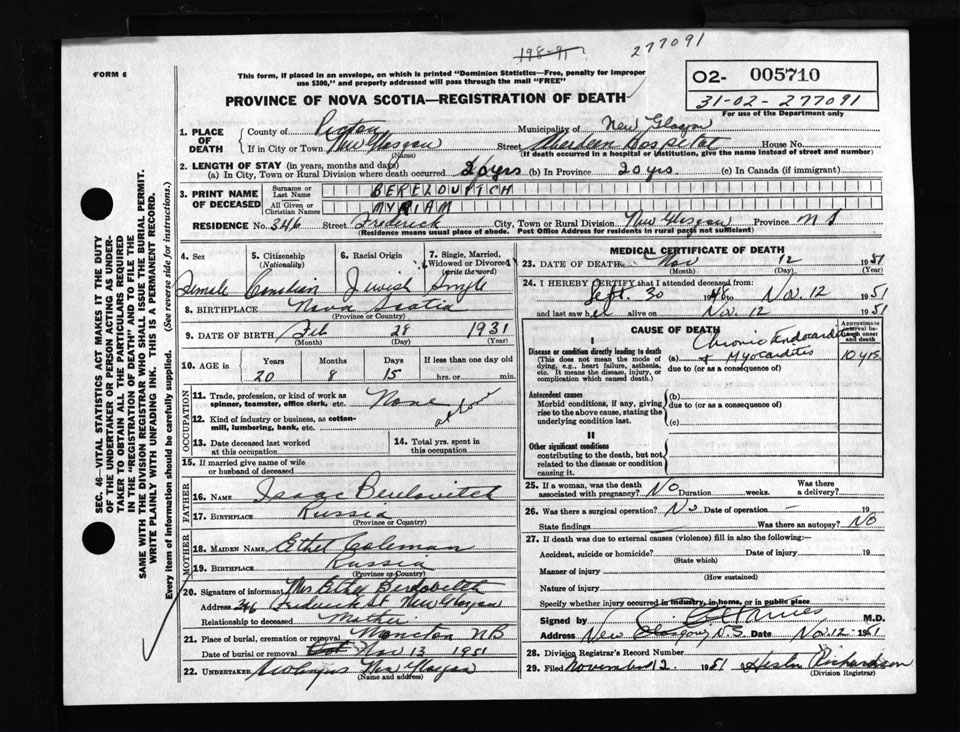 198-91
277091
FORM 6
This form, if placed in an envelope, on which is printed "Dominion Statistics—Free, penalty for improper
use $300," and properly addressed will pass through the mail "FREE"
PROVINCE OF NOVA SCOTIA—REGISTRATION OF DEATH
02- 005710
31-02-277091
For use of the Department only
SEC. 46—VITAL STATISTICS ACT MAKES IT THE DUTY
OF THE UNDERTAKER OR PERSON ACTING AS UNDER-
TAKER TO OBTAIN ALL THE PARTICULARS REQUIRED
IN THE "REGISTRATION OF DEATH" AND TO FILE THE
SAME WITH THE DIVISION REGISTRAR WHO SHALL ISSUE THE BURIAL PERMIT.
WRITE PLAINLY WITH UNFADING INK. THIS IS A PERMANENT RECORD.
Every item of information should be carefully supplied. (See reverse side for instructions.)
1. PLACE OF DEATH
County of Pictou Municipality of New Glasgow
If in City or Town New Glasgow Street Aberdeen Hospital House No.
(Name) (If death occurred in a hospital or institution, give the name instead of street and number)
2. LENGTH OF STAY (in years, months and days)
(a) In City, Town or Rural Division where death occurred 20 yrs (b) In Province 20 yrs (c) In Canada (if immigrant)
3. PRINT NAME OF DECEASED
Surname or Last Name BERELOVITCH
All Given or Christian Names MYRIAM
RESIDENCE No. 346 Street Frederick City, Town or Rural Division New Glasgow Province N S
(Residence means usual place of abode. Post Office Address for residents in rural parts not sufficient)
4. Sex 5. Citizenship (Nationality) 6. Racial Origin 7. Single, Married, Widowed or Divorced (write the word)
Female Canadian Jewish Single
8. BIRTHPLACE Nova Scotia
(Province or Country)
9. DATE OF BIRTH Feb 28 1931
(Month) (Day) (Year)
10. AGE in Years Months Days If less than one day old
20 8 15 hrs. or min.
OCCUPATION
11. Trade, profession, or kind of work as
spinner, teamster, office clerk, etc. None
12. Kind of industry or business, as cotton-
mill, lumbering, bank, etc.
13. Date deceased last worked
at this occupation
14. Total yrs. spent in
this occupation
15. If married give name of wife
or husband of deceased
FATHER
16. NAME Isaac Berelovitch
17. BIRTHPLACE Russia
(Province or Country)
MOTHER
18. MAIDEN NAME Ethel Coleman
19. BIRTHPLACE Russia
(Province or Country)
20. Signature of informant Mrs Ethel Berelovitch
Address 346 Frederick St. New Glasgow
Relationship to deceased Mother
21. Place of burial, cremation or removal Moncton NB
Date of burial or removal Nov 13 1951
22. UNDERTAKER New Glasgow
(Name and address)
MEDICAL CERTIFICATE OF DEATH
23. DATE OF DEATH Nov 12 1951
(Month) (Day) (Year)
24. I HEREBY CERTIFY that I attended deceased from:
Sept. 30 1946 to Nov. 12 1951
and last saw her alive on Nov. 12 1951
CAUSE OF DEATH
Approximate interval between onset and death
I
Disease or condition directly leading to death
(This does not mean the mode of
dying, e.g., heart failure, asthenia,
etc. It means the disease, injury, or
complication which caused death.)
(a) Chronic Endocarditis
& Myocarditis 10 yrs.
due to (or as a consequence of)
Antecedent causes
Morbid conditions, if any, giving
rise to the above cause, stating the
underlying condition last.
(b)
due to (or as a consequence of)
(c)
II
Other significant conditions
contributing to the death, but not
related to the disease or condition
causing it.
25. If a woman, was the death
associated with pregnancy? No Duration weeks. Was there
a delivery?
26. Was there a surgical operation? No Date of operation — 19
State findings Was there an autopsy? No
27. If death was due to external causes (violence) fill in also the following:—
Accident, suicide or homicide? Date of injury 19
(State which)
Manner of injury
(How sustained)
Nature of injury
Specify whether injury occurred in industry, in home, or in public place
Signed by M.D.
Address New Glasgow, N.S. Date Nov. 12 1951
28. Division Registrar's Record Number
29. Filed November 12 1951 Hester Richardson
(Division Registrar)